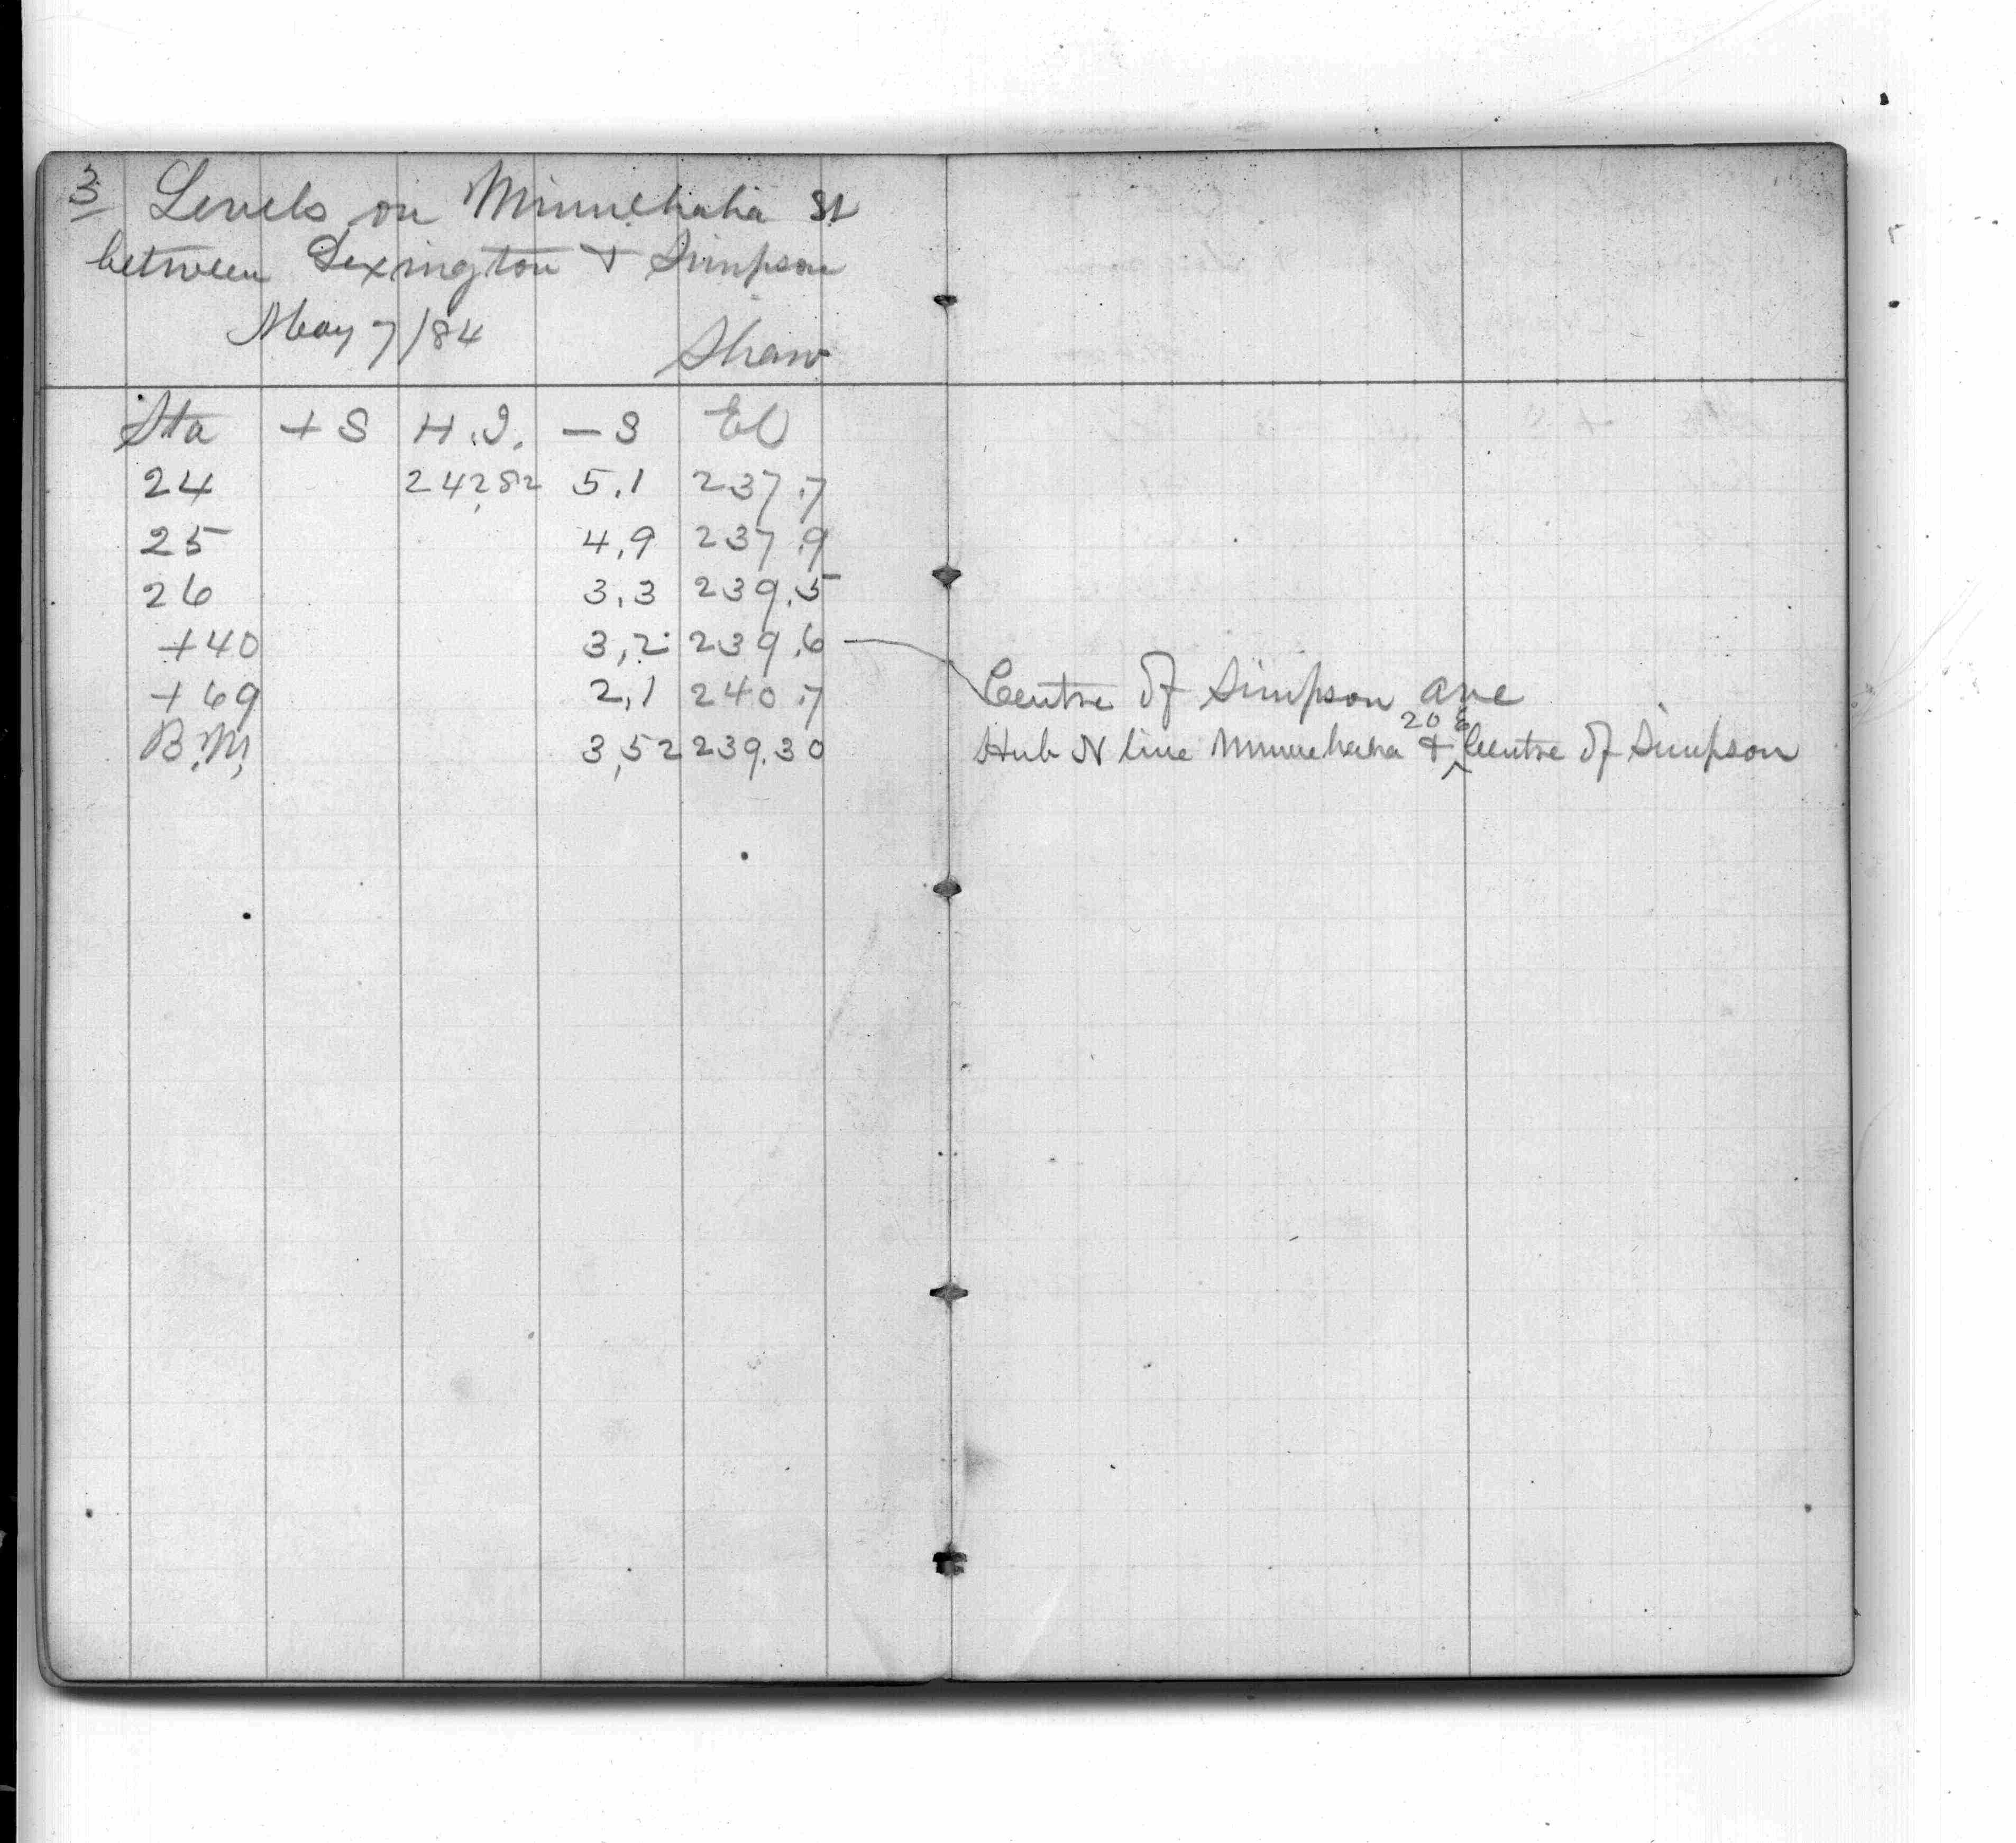 3 Levels on Minnehaha St
between Lexington + Simpson
May 7/84 Shaw
Sta +S H.I. -S El
24 242,82 5,1 237.7
25 4,9 237.9
26 3,3 239.5
+40 3,2 239.6
+69 2,1 240.7
B.M. 3,52 239.30
Centre of Simpson ave
Hub N line Minnehaha + 20 E Centre of Simpson